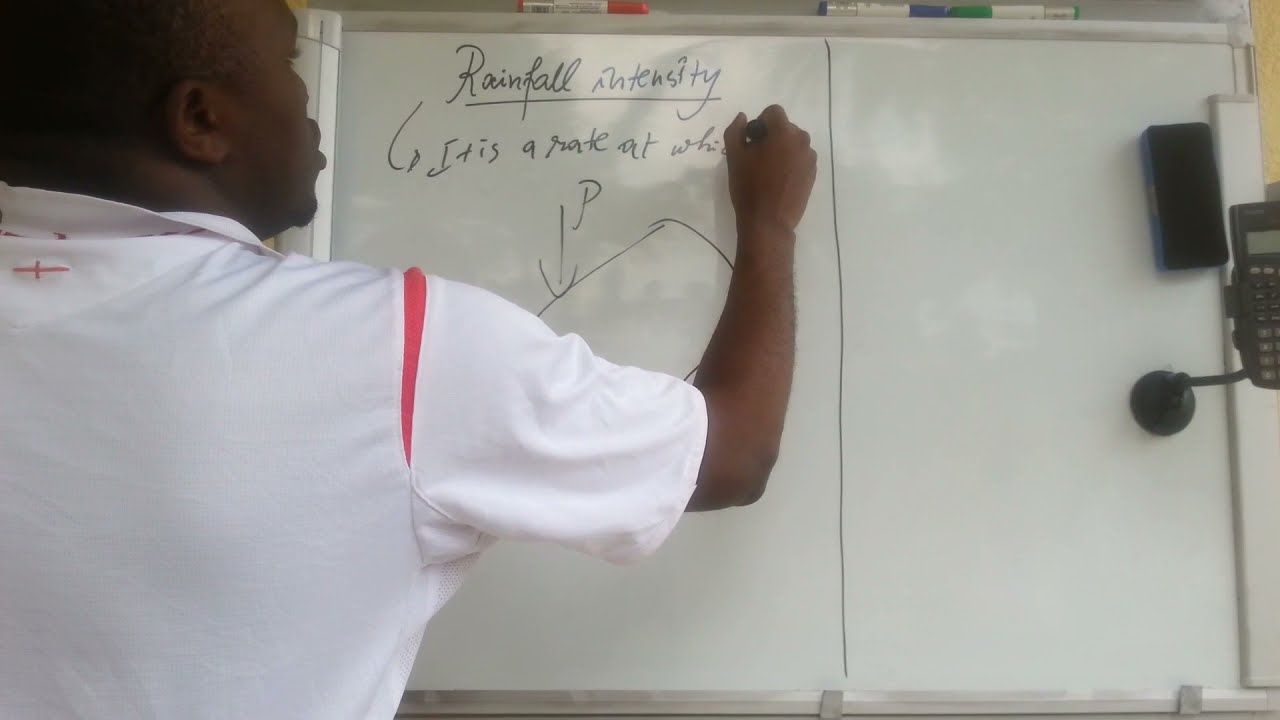 Rainfall intensity
It is a rate at whi
P